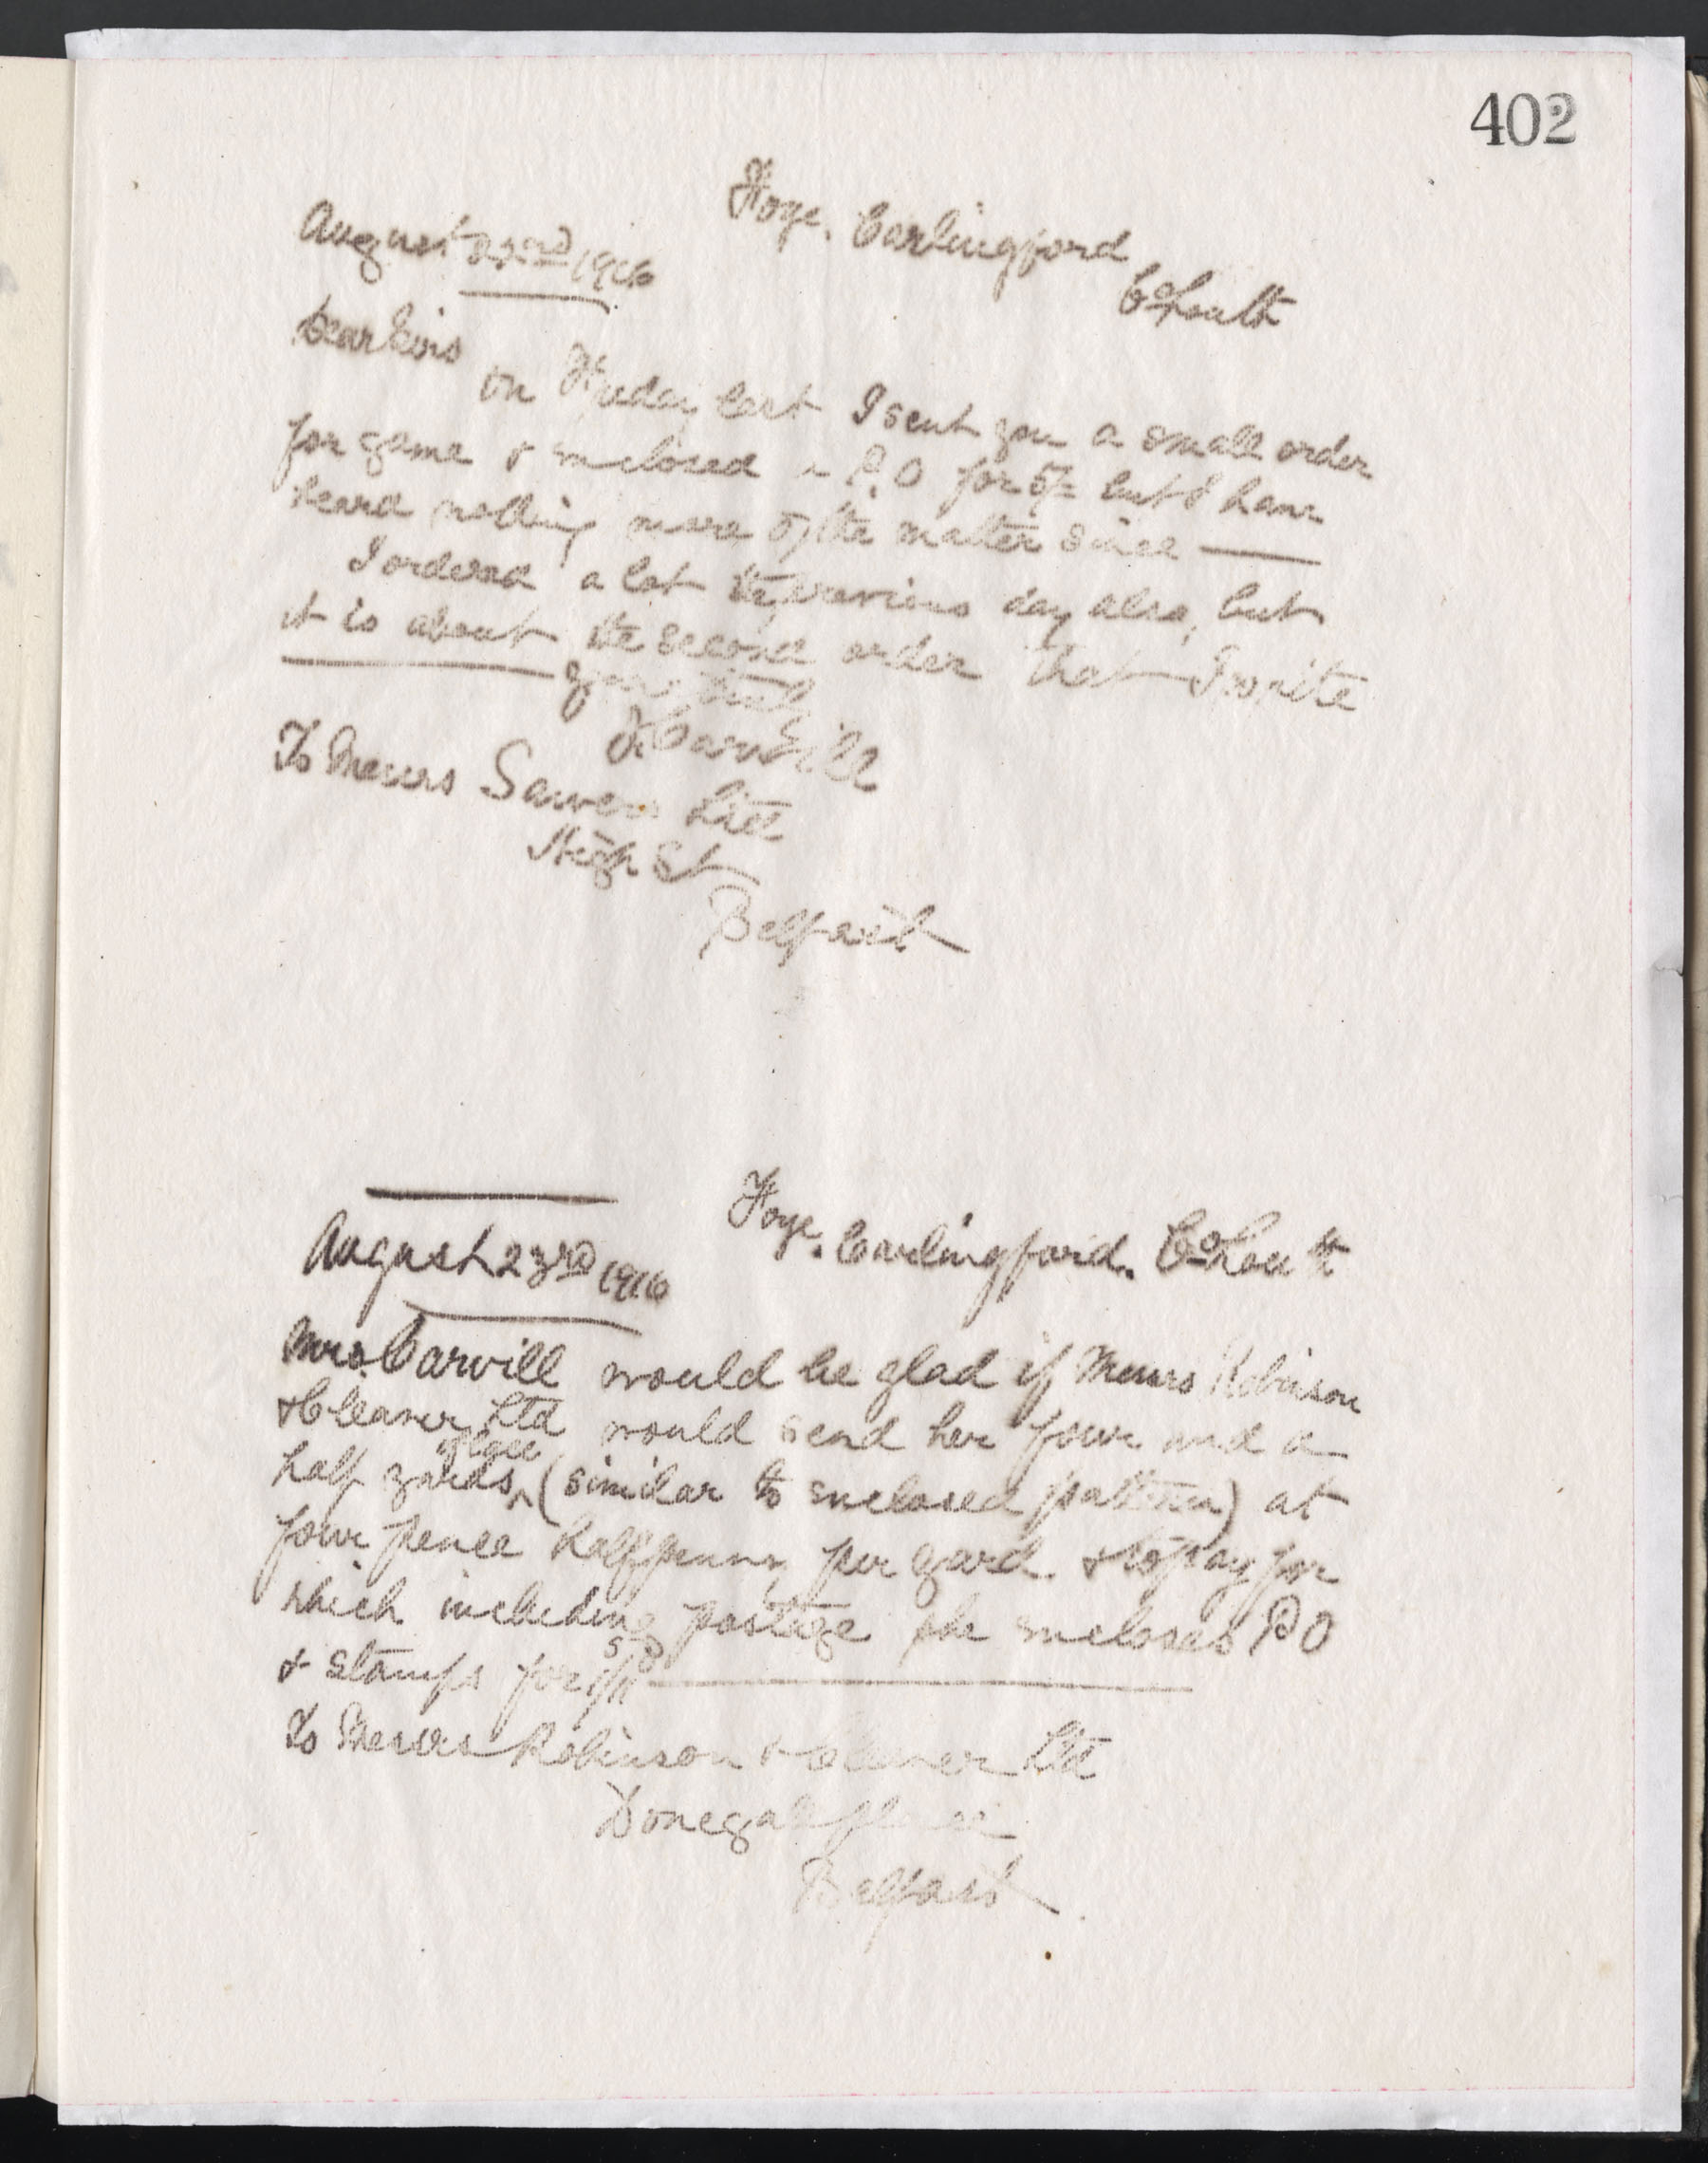 402
Foye, Carlingford
Co Louth
August 23rd 1916
Dear Sirs
On Friday last I sent you a small order
for game & enclosed a P.O for 5/= but I have
heard nothing more of the matter since —
I ordered a lot the previous day also, but
it is about the second order that I write
yours truly
Carvill
To Messrs Sawers Ltd
High St
Belfast
Foye, Carlingford. Co Louth
August 23rd 1916
Mrs. Carvill would be glad if Messrs Robinson
& Cleaver Ltd would send her four and a
half yards (similar to enclosed pattern) at
four pence halfpenny per yard. & to pay for
which including postage she encloses P O
& stamps for 1s/11D
To Messrs Robinson & Cleaver Ltd
Donegall place
Belfast